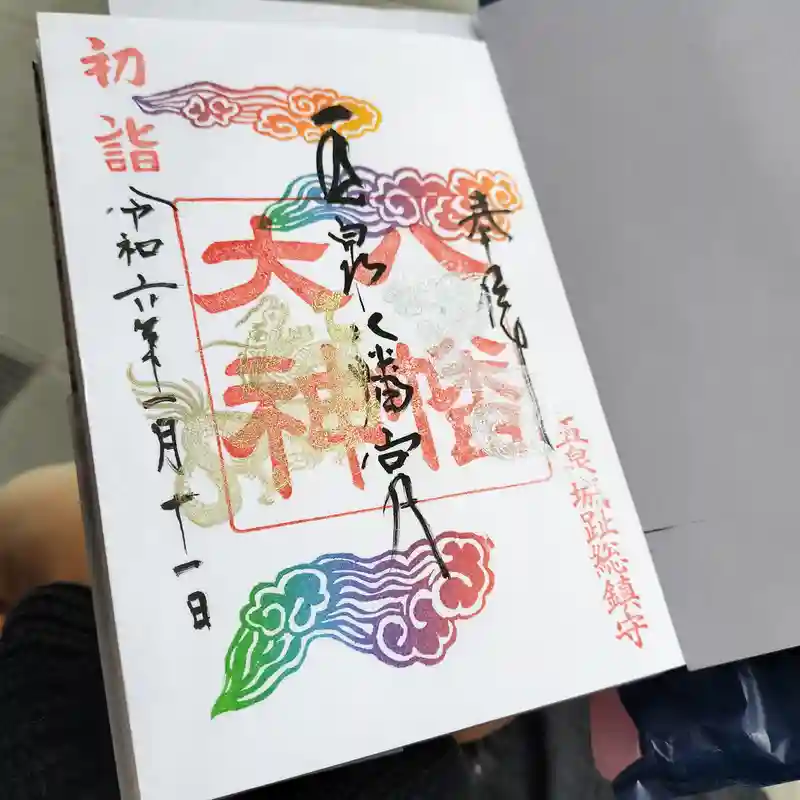 奉拝
五泉城趾総鎮守
八幡
大神
五泉八幡宮
初詣
令和六年一月十一日